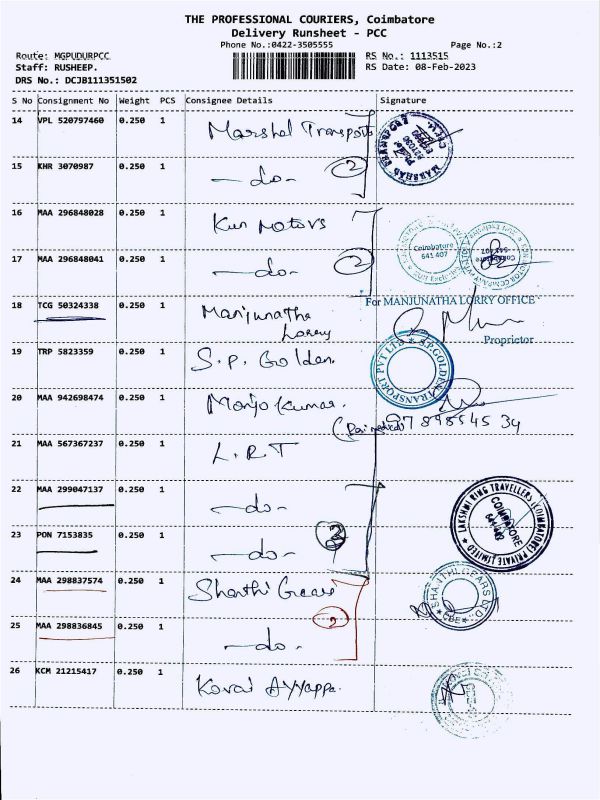 THE PROFESSIONAL COURIERS, Coimbatore
Delivery Runsheet - PCC
Phone No.:0422-3505555
Page No.:2
Route: MGPUDURPCC
RS No.: 1113515
Staff: RUSHEEP.
RS Date: 08-Feb-2023
DRS No.: DCJB111351502
S No Consignment No Weight PCS Consignee Details Signature
14 VPL 520797460 0.250 1 Marshal Transports
15 KHR 3070987 0.250 1 -do- 2
16 MAA 296848028 0.250 1 Kun Motors
17 MAA 296848041 0.250 1 -do- 2
Coimbatore
641 407
18 TCG 50324338 0.250 1 Manjunatha
Lorry
For MANJUNATHA LORRY OFFICE
Proprietor
19 TRP 5823359 0.250 1 S.P. Golden.
S.P.GOLDEN TRANSPORT PVT LTD
20 MAA 942698474 0.250 1 Manjo Kumar.
21 MAA 567367237 0.250 1 L.R.T
22 MAA 299047137 0.250 1 -do-
LAKSHMI RING TRAVELLERS (COIMBATORE) PRIVATE LIMITED
COIMBATORE
23 PON 7153835 0.250 1 -do- 3
24 MAA 298837574 0.250 1 Shanthi Gears
SHANTHI GEARS LTD
CBE
25 MAA 298836845 0.250 1 -do- 2
26 KCM 21215417 0.250 1 Kovai Ayyappa.